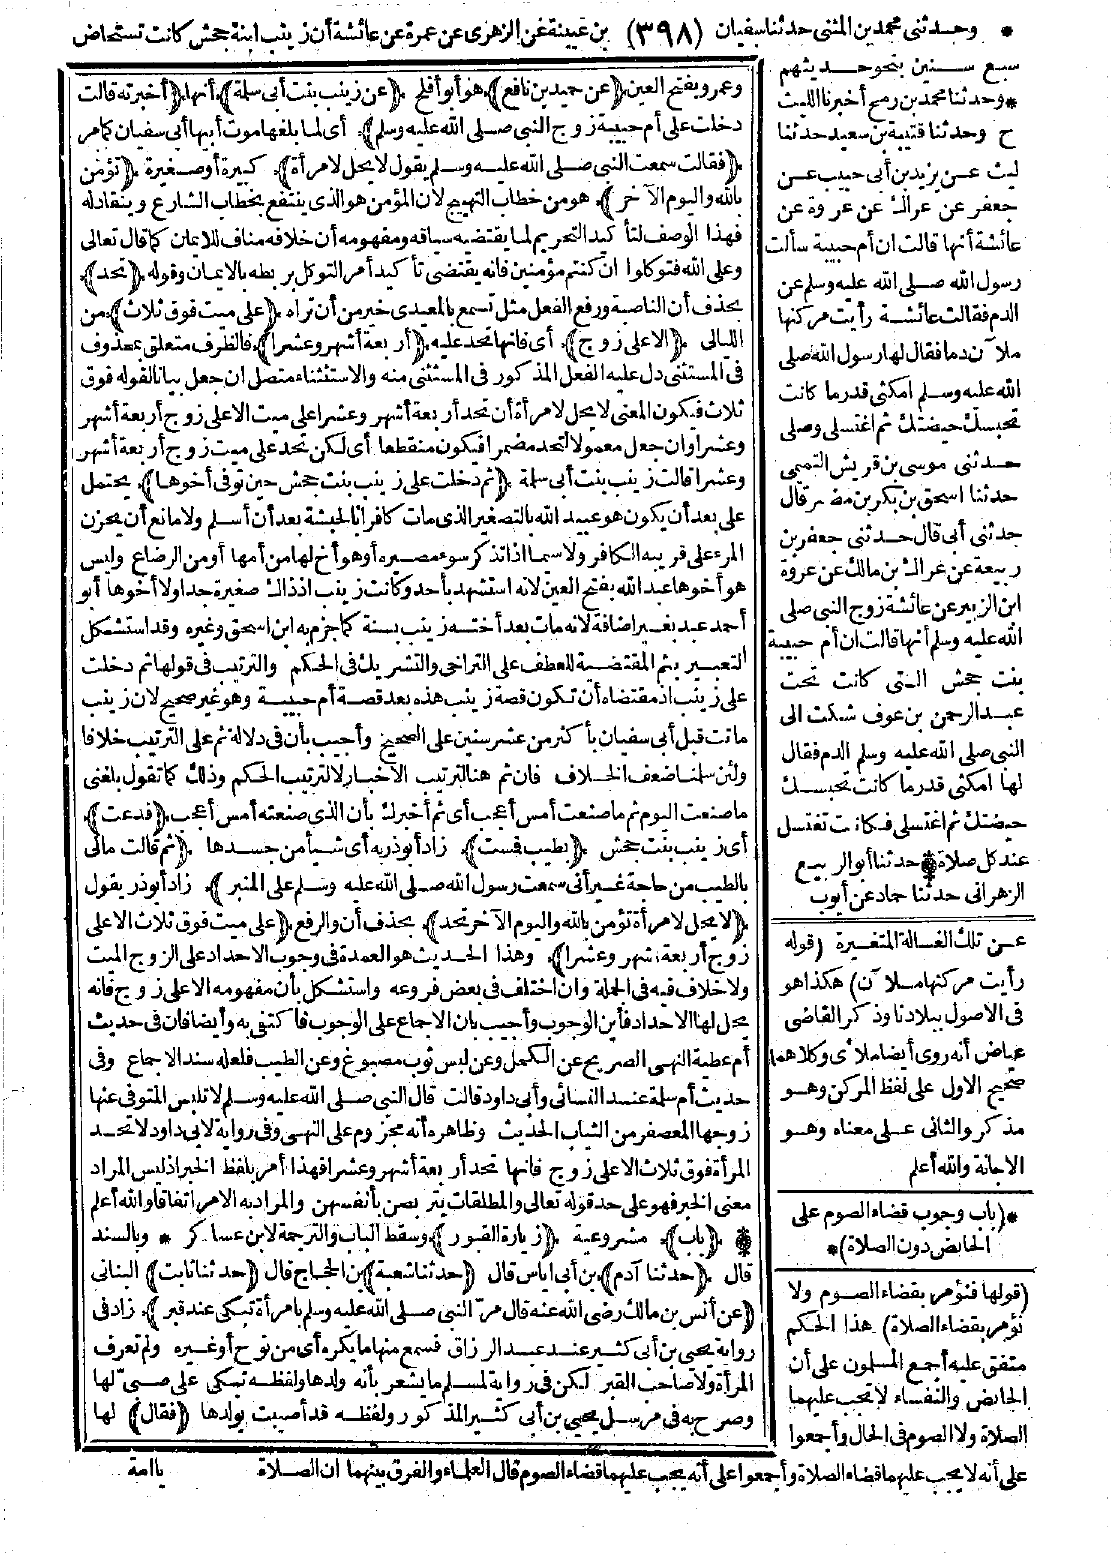 * وحدثنى محمد بن المثنى حدثنا سفيان (٣٩٨) بن عيينة عن الزهرى عن عمرة عن عائشة أن زينب ابنة جحش كانت تستحاض
سبع سنين بنحو حديثهم
* وحدثنا محمد بن رمح أخبرنا الليث
ح وحدثنا قتيبة بن سعيد حدثنا
ليث عن يزيد بن أبى حبيب عن
جعفر عن عراك عن عروة عن
عائشة أنها قالت ان أم حبيبة سألت
رسول الله صلى الله عليه وسلم عن
الدم فقالت عائشة رأيت مركنها
ملآن دما فقال لها رسول الله صلى
الله عليه وسلم امكثى قدر ما كانت
تحبسك حيضتك ثم اغتسلى وصلى
حدثنى موسى بن قريش التميمى
حدثنا اسحق بن بكر بن مضر قال
حدثنى أبى قال حدثنى جعفر بن
ربيعة عن عراك بن مالك عن عروة
ابن الزبير عن عائشة زوج النبى صلى
الله عليه وسلم أنها قالت ان أم حبيبة
بنت جحش التى كانت تحت
عبد الرحمن بن عوف شكت الى
النبى صلى الله عليه وسلم الدم فقال
لها امكثى قدر ما كانت تحبسك
حيضتك ثم اغتسلى فكانت تغتسل
عند كل صلاة * حدثنا أبو الربيع
الزهرانى حدثنا حماد عن أيوب
عن تلك الغسالة المتغيرة (قوله
رأيت مركنها ملآن) هكذا هو
فى الاصول ببلادنا وذكر القاضى
عياض أنه روى أيضا ملأى وكلاهما
صحيح الاول على لفظ المركن وهو
مذكر والثانى على معناه وهو
الاجانة والله أعلم
*(باب وجوب قضاء الصوم على
الحائض دون الصلاة)*
(قولها فنؤمر بقضاء الصوم ولا
نؤمر بقضاء الصلاة) هذا الحكم
متفق عليه أجمع المسلمون على أن
الحائض والنفساء لا تجب عليهما
الصلاة ولا الصوم فى الحال وأجمعوا
على أنه لا يجب عليهما قضاء الصلاة وأجمعوا على أنه يجب عليهما قضاء الصوم قال العلماء والفرق بينهما ان الصلاة
يا امة
وعمرو بفتح العين (عن حميد بن نافع) هو أبو أفلح (عن زينب بنت أبى سلمة) أنها (أخبرته قالت
دخلت على أم حبيبة زوج النبى صلى الله عليه وسلم) أى لما بلغها موت أبيها أبى سفيان كما مر
(فقالت سمعت النبى صلى الله عليه وسلم يقول لا يحل لامرأة) كبيرة أو صغيرة (تؤمن
بالله واليوم الآخر) هو من خطاب التهييج لان المؤمن هو الذى ينتفع بخطاب الشارع وينقاد له
فهذا الوصف لتأكيد التحريم لما يقتضيه سياقه ومفهومه أن خلافه مناف للايمان كما قال تعالى
وعلى الله فتوكلوا ان كنتم مؤمنين فانه يقتضى تأكيد أمر التوكل بربطه بالايمان وقوله (تحد)
بحذف أن الناصبة ورفع الفعل مثل تسمع بالمعيدى خير من أن تراه (على ميت فوق ثلاث) من
الليالى (الا على زوج) أى فانها تحد عليه (أربعة أشهر وعشرا) فالظرف متعلق بمحذوف
فى المستثنى دل عليه الفعل المذكور فى المستثنى منه والاستثناء متصل ان جعل بيانا لقوله فوق
ثلاث فيكون المعنى لا يحل لامرأة أن تحد أربعة أشهر وعشرا على ميت الا على زوج أربعة أشهر
وعشرا وان جعل معمولا لتحد مضمرا فيكون منقطعا أى لكن تحد على ميت زوج أربعة أشهر
وعشرا قالت زينب بنت أبى سلمة (ثم دخلت على زينب بنت جحش حين توفى أخوها) يحتمل
على بعد أن يكون هو عبيد الله بالتصغير الذى مات كافرا بالحبشة بعد أن أسلم ولا مانع أن يحزن
المرء على قريبه الكافر ولا سيما اذا تذكر سوء مصيره أو هو أخ لها من أمها أو من الرضاع وليس
هو أخوها عبد الله بفتح العين لانه استشهد بأحد وكانت زينب اذ ذاك صغيرة جدا ولا أخوها أبو
أحمد عبد بغير اضافة لانه مات بعد أخته زينب بسنة كما جزم به ابن اسحق وغيره وقد استشكل
التعبير بثم المقتضية للعطف على التراخى والتشريك فى الحكم والترتيب فى قولها ثم دخلت
على زينب اذ مقتضاه أن تكون قصة زينب هذه بعد قصة أم حبيبة وهو غير صحيح لان زينب
ماتت قبل أبى سفيان بأكثر من عشر سنين على الصحيح وأجيب بأن فى دلالة ثم على الترتيب خلافا
ولئن سلمنا ضعف الخلاف فان ثم هنا لترتيب الاخبار لا لترتيب الحكم وذلك كما تقول بلغنى
ما صنعت اليوم ثم ما صنعت أمس أعجب أى ثم أخبرك بأن الذى صنعته أمس أعجب (فدعت)
أى زينب بنت جحش (بطيب فمست) زاد أبو ذر به أى شيأ من جسدها (ثم قالت مالى
بالطيب من حاجة غير أنى سمعت رسول الله صلى الله عليه وسلم على المنبر) زاد أبو ذر يقول
(لا يحل لامرأة تؤمن بالله واليوم الآخر تحد) بحذف أن والرفع (على ميت فوق ثلاث الا على
زوج أربعة أشهر وعشرا) وهذا الحديث هو العمدة فى وجوب الاحداد على الزوج الميت
ولا خلاف فيه فى الجملة وان اختلف فى بعض فروعه واستشكل بأن مفهومه الا على زوج فانه
يحل لها الاحداد فأين الوجوب وأجيب بان الاجماع على الوجوب فاكتفى به وأيضا فان فى حديث
أم عطية النهى الصريح عن الكحل وعن لبس ثوب مصبوغ وعن الطيب فلعله سند الاجماع وفى
حديث أم سلمة عند النسائى وأبى داود قالت قال النبى صلى الله عليه وسلم لا تلبس المتوفى عنها
زوجها المعصفر من الثياب الحديث وظاهره أنه مجزوم على النهى وفى رواية لابى داود لا تحد
المرأة فوق ثلاث الا على زوج فانها تحد أربعة أشهر وعشرا فهذا أمر بلفظ الخبر اذ ليس المراد
معنى الخبر فهو على حد قوله تعالى والمطلقات يتربصن بأنفسهن والمراد به الامر اتفاقا والله أعلم
* (باب) مشروعية (زيارة القبور) وسقط الباب والترجمة لابن عساكر * وبالسند
قال (حدثنا آدم) بن أبى اياس قال (حدثنا شعبة) بن الحجاج قال (حدثنا ثابت) البنانى
(عن أنس بن مالك رضى الله عنه قال مر النبى صلى الله عليه وسلم بامرأة تبكى عند قبر) زاد فى
رواية يحيى بن أبى كثير عند عبد الرزاق فسمع منها ما يكره أى من نوح أو غيره ولم تعرف
المرأة ولا صاحب القبر لكن فى رواية لمسلم ما يشعر بأنه ولدها ولفظه تبكى على صبى لها
وصرح به فى مرسل يحيى بن أبى كثير المذكور ولفظه قد أصيبت بولدها (فقال) لها